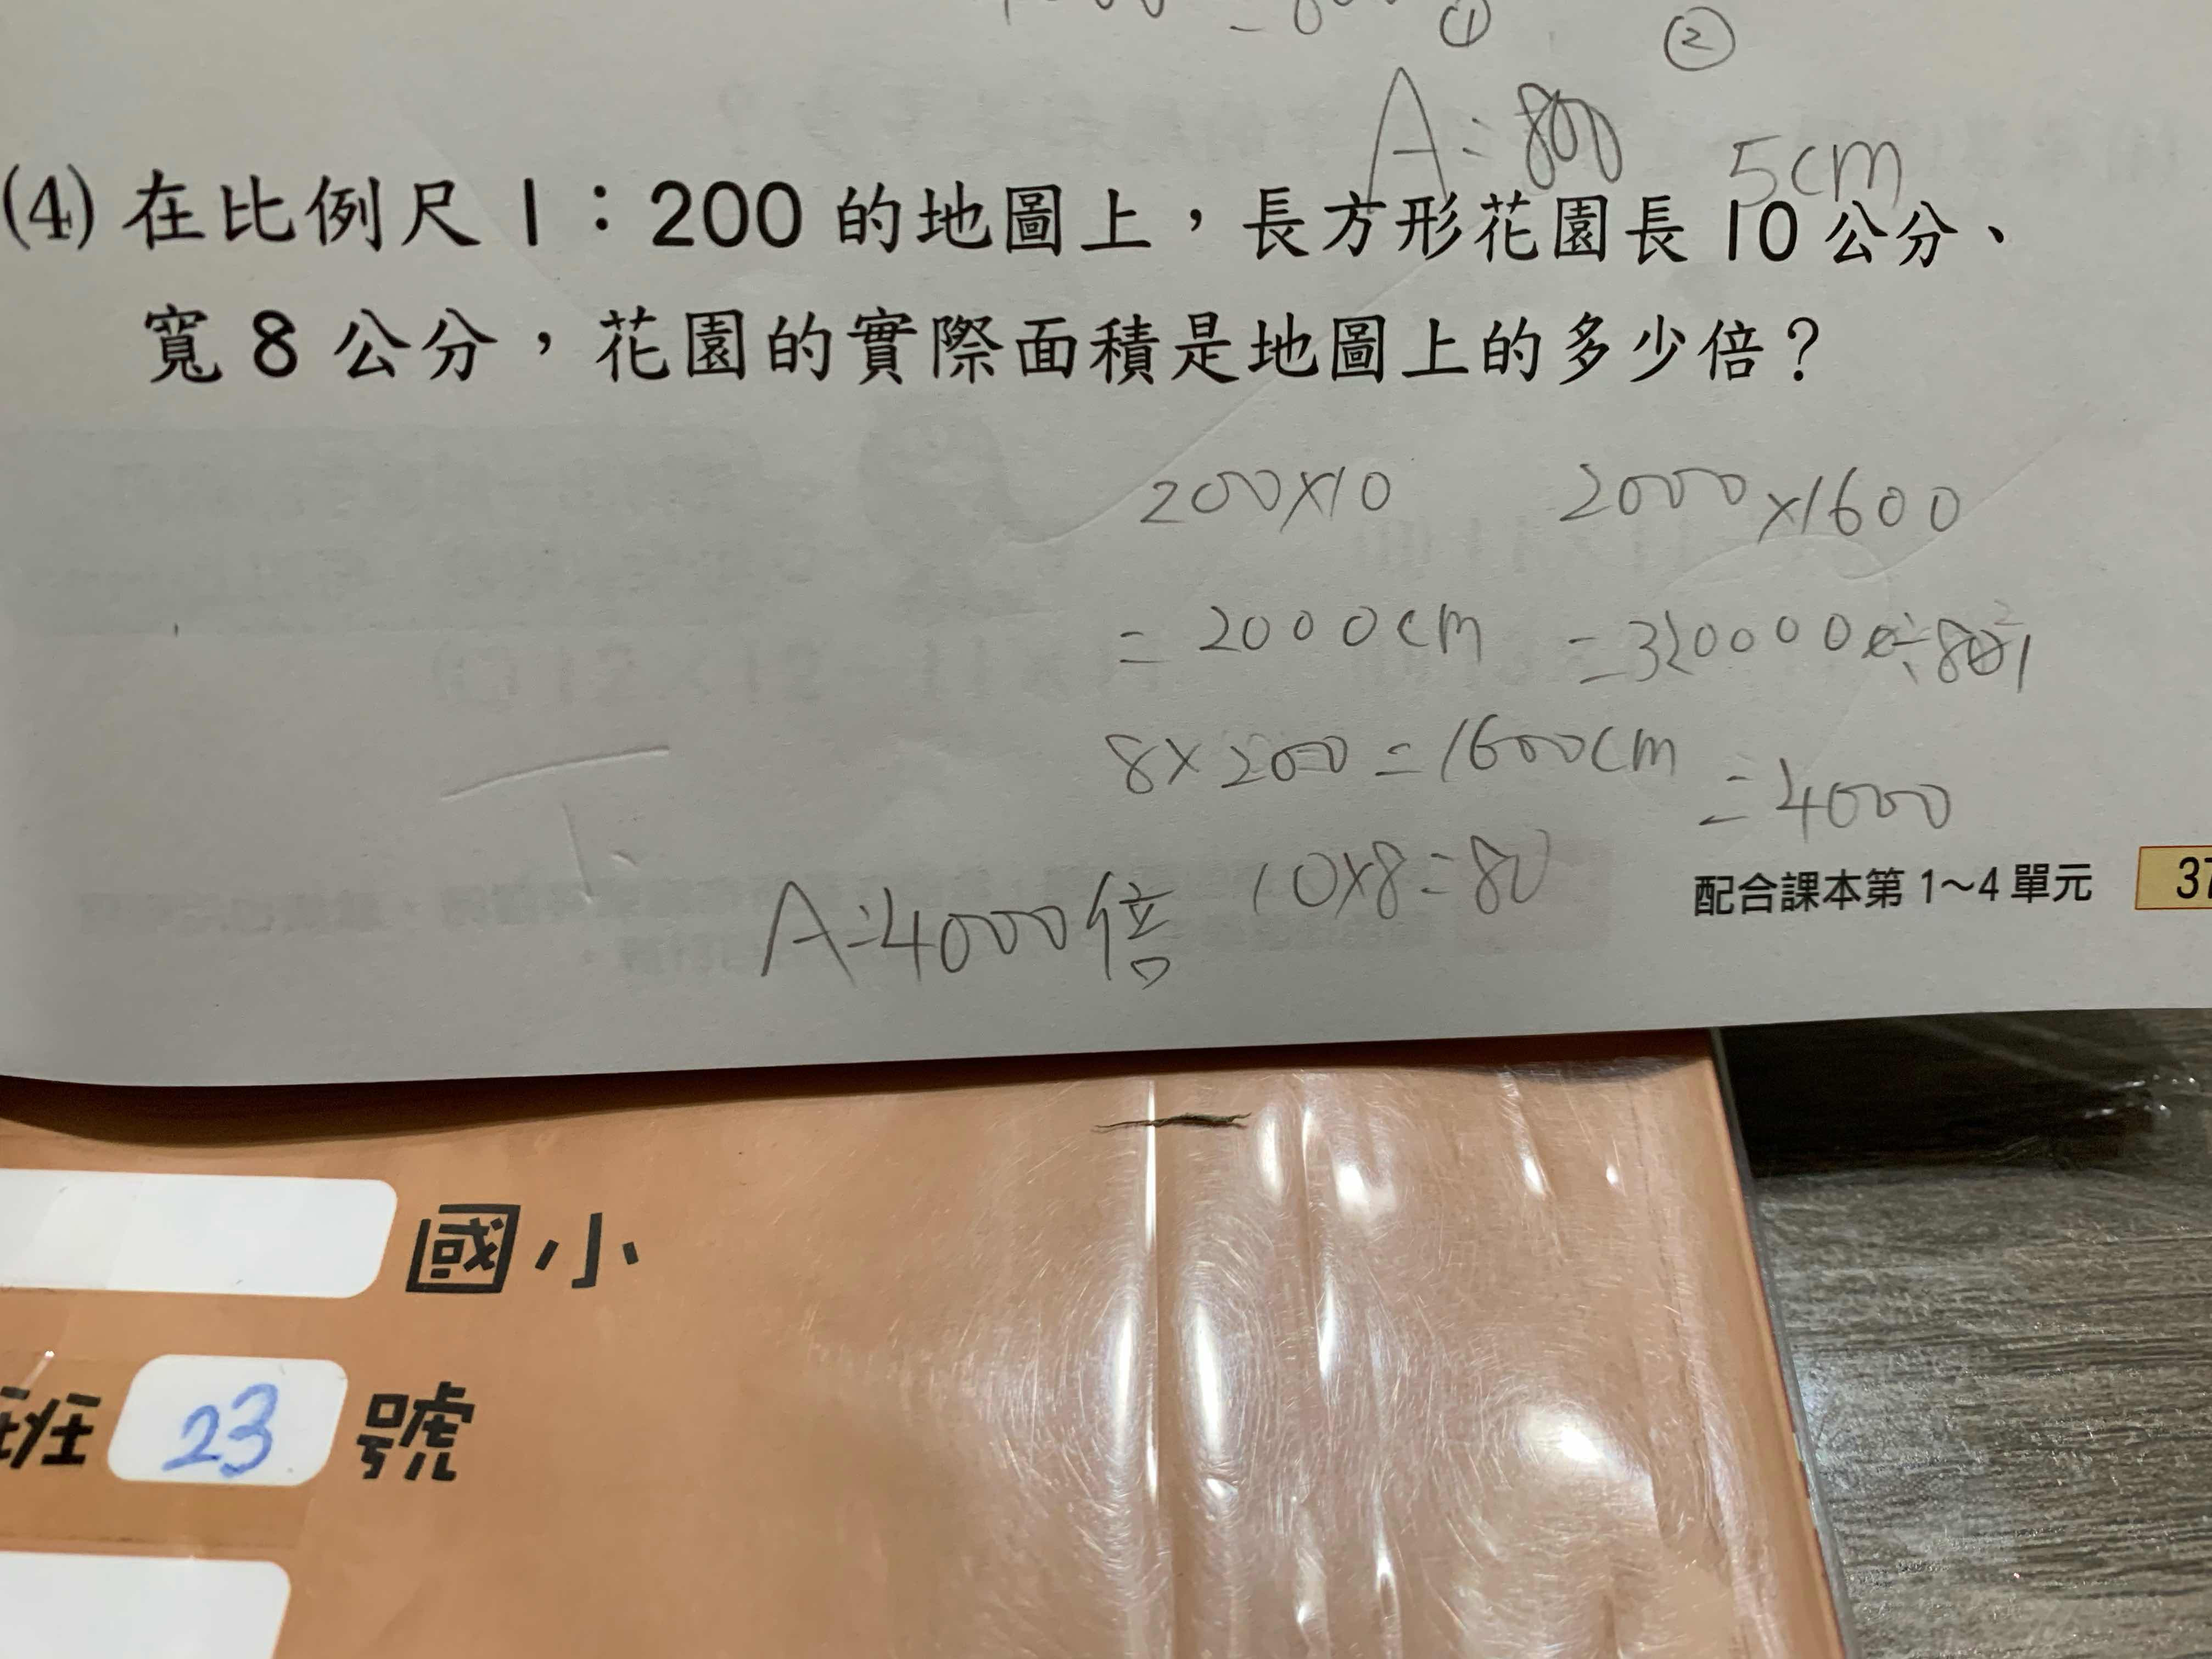 ① ②
A=800 5cm
(4) 在比例尺 1：200 的地圖上，長方形花園長 10 公分、
寬 8 公分，花園的實際面積是地圖上的多少倍？
200×10 2000×1600
= 2000cm =320000
8×200=1600cm =4000
10×8=80
A=4000倍
配合課本第 1～4 單元 37
國小
班 23 號